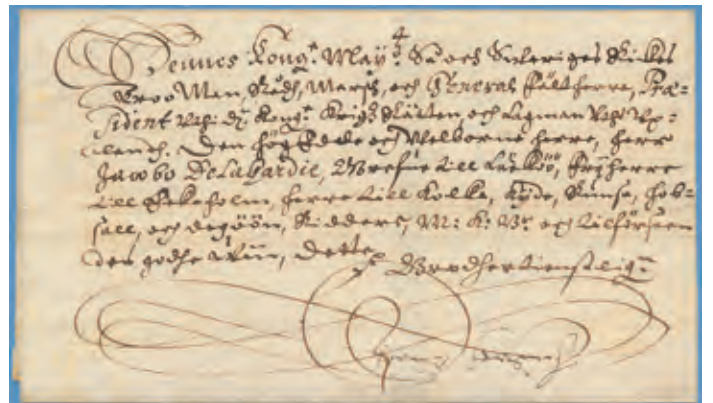 Hennes Kong:ᵉ May:ᵗᵗ Så och Sweriges Rickes
Troo Man, Rådh, Marsk, och General Fältherre, Præ-
sident uthi d: Kong:ᵉ Krigz Rätten, och Lagman uthi Up-
landh. Den Höga Edele och Welborne Herre, Herr
Jacobo DeLaGardie, Grefue till Läcköö, Fryherre
till Eckeholm, Herre till Kolka, Kyda, Runsa, Hap-
sall, och Dagöön, Ridder, M: K: B:ʳ och tilförseen
des godhe Wän, dette
Brodhertienstelig:ⁿ